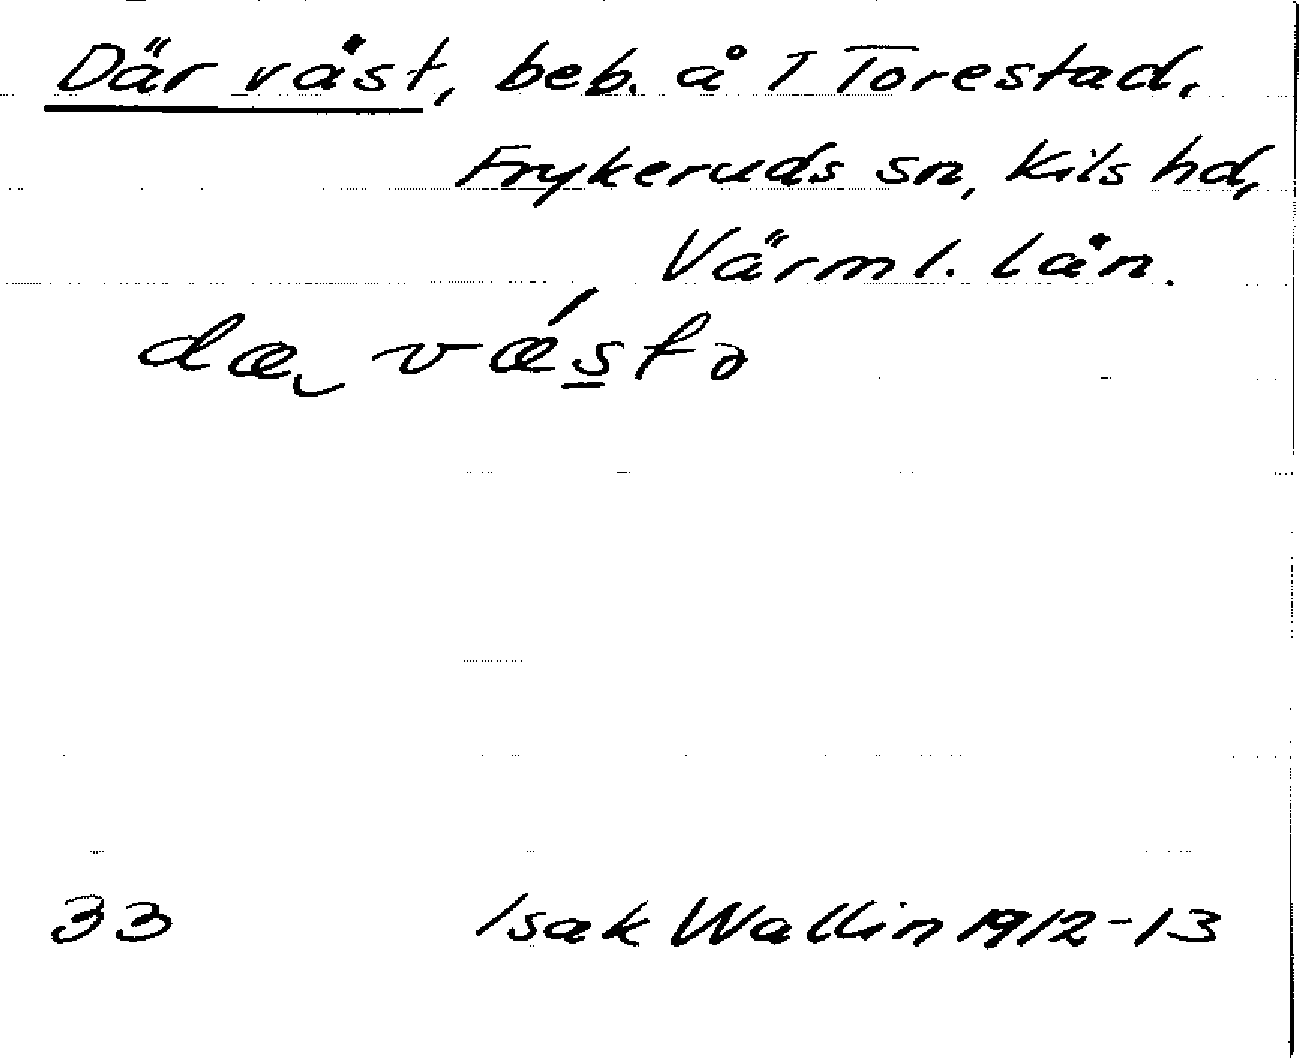 Där väst, beb. å 1 Torestad,
Frykeruds sn, Kils hd,
Värml. län.
dæ vǽstə
33 Isak Wallin 1912-13